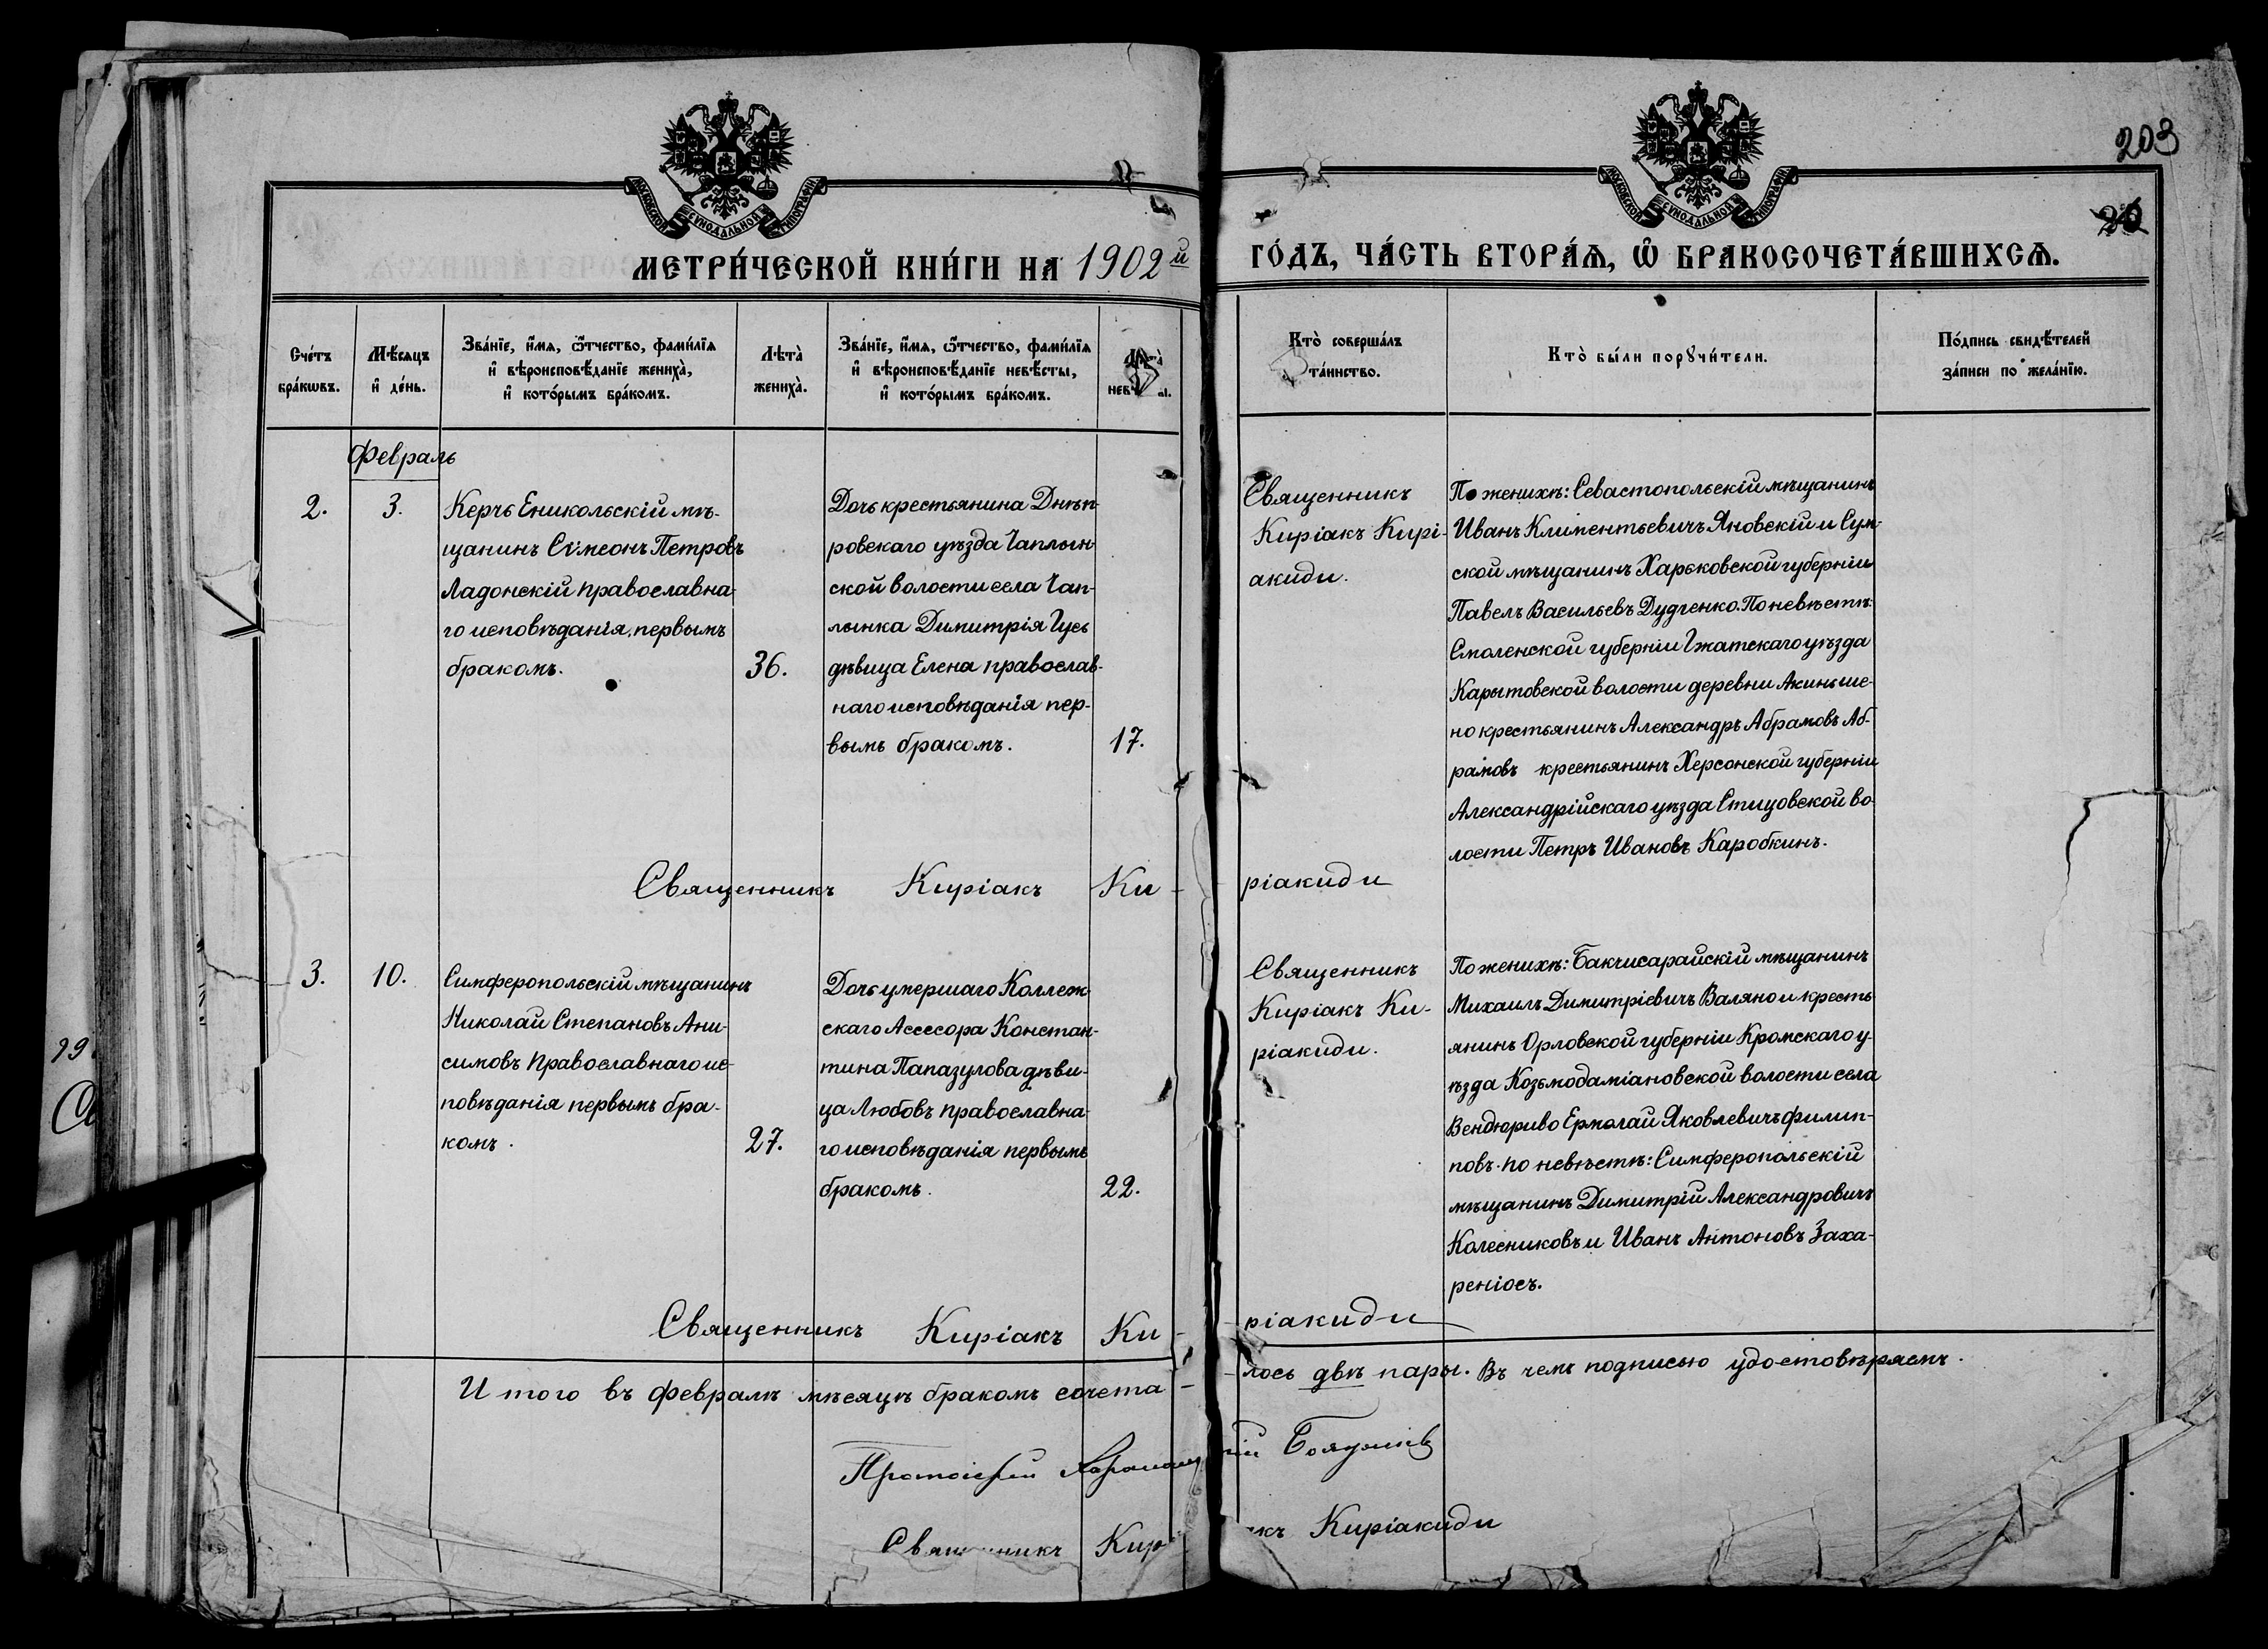 203
20
МОСКОВСКОЙ СѴНОДАЛЬНОЙ ТИПОГРАФІИ.
МОСКОВСКОЙ СѴНОДАЛЬНОЙ ТИПОГРАФІИ.
МЕТРИ́ЧЕСКОЙ КНИ́ГИ НА 1902й ГО́ДЪ, ЧА́СТЬ ВТОРА́Я, Ѿ БРАКОСОЧЕТА́ВШИХСѦ.
Сче́тъ
бра́кѡвъ.
Мѣ́сяцъ
и҆ де́нь.
Зва́нїе, и҆́мя, ѻ҆́тчество, фами́лїя
и҆ вѣроисповѣ́данїе жениха̀,
и҆ кото́рымъ бра́комъ.
Лѣта̀
жениха̀.
Зва́нїе, и҆́мя, ѻ҆́тчество, фами́лїя
и҆ вѣроисповѣ́данїе невѣ́сты,
и҆ кото́рымъ бра́комъ.
Кто̀ соверша́лъ
та́инство.
Кто̀ бы́ли порꙋчи́тели.
По́дпись свидѣ́телей
за́писи по жела́нїю.
Февраль
2.
3.
Керчь Еникольскій мѣ-
щанинъ Сѵмеонъ Петровъ
Ладонскій православна-
го исповѣданія, первымъ
бракомъ.
36.
Дочь крестьянина Днѣп-
ровскаго уѣзда Чаплын-
ской волости села Чап-
лынка Димитрія Гусь
дѣвица Елена православ-
наго исповѣданія пер-
вымъ бракомъ.
17.
Священникъ
Киріакъ Кирі-
акиди.
По женихѣ: Севастопольскій мѣщанинъ
Иванъ Климентьевичъ Яновскій и Сум-
ской мѣщанинъ Харьковской губерніи
Павелъ Васильевъ Дудченко. По невѣстѣ:
Смоленской губерніи Гжатскаго уѣзда
Карытовской волости деревни Акиньше-
но крестьянинъ Александръ Абрамовъ Аб-
рамовъ крестьянинъ Херсонской губерніи
Александрійскаго уѣзда Стицовской во-
лости Петръ Ивановъ Каробкинъ.
Священникъ Киріакъ Ки-
ріакиди
3.
10.
Симферопольскій мѣщанинъ
Николай Степановъ Ани-
симовъ православнаго ис-
повѣданія первымъ бра-
комъ.
27.
Дочь умершаго Коллеж-
скаго Ассесора Констан-
тина Папазулова дѣви-
ца Любовь православна-
го исповѣданія первымъ
бракомъ.
22.
Священникъ
Киріакъ Ки-
ріакиди.
По женихѣ: Бакчисарайскій мѣщанинъ
Михаилъ Димитріевичъ Валяно и кресть-
янинъ Орловской губерніи Кромскаго у-
ѣзда Козьмодаміановской волости села
Вендюриво Ермолай Яковлевичъ Филип-
повъ. по невѣстѣ: Симферопольскій
мѣщанинъ Димитрій Александровичъ
Колесниковъ и Иванъ Антоновъ Заха-
реніосъ.
Священникъ Киріакъ Ки-
ріакиди
Итого въ февралѣ мѣсяцѣ бракомъ сочета-
лось двѣ пары. Въ чемъ подписью удостовѣряемъ.
Протоіерей
Священникъ Кир
акъ Киріакиди